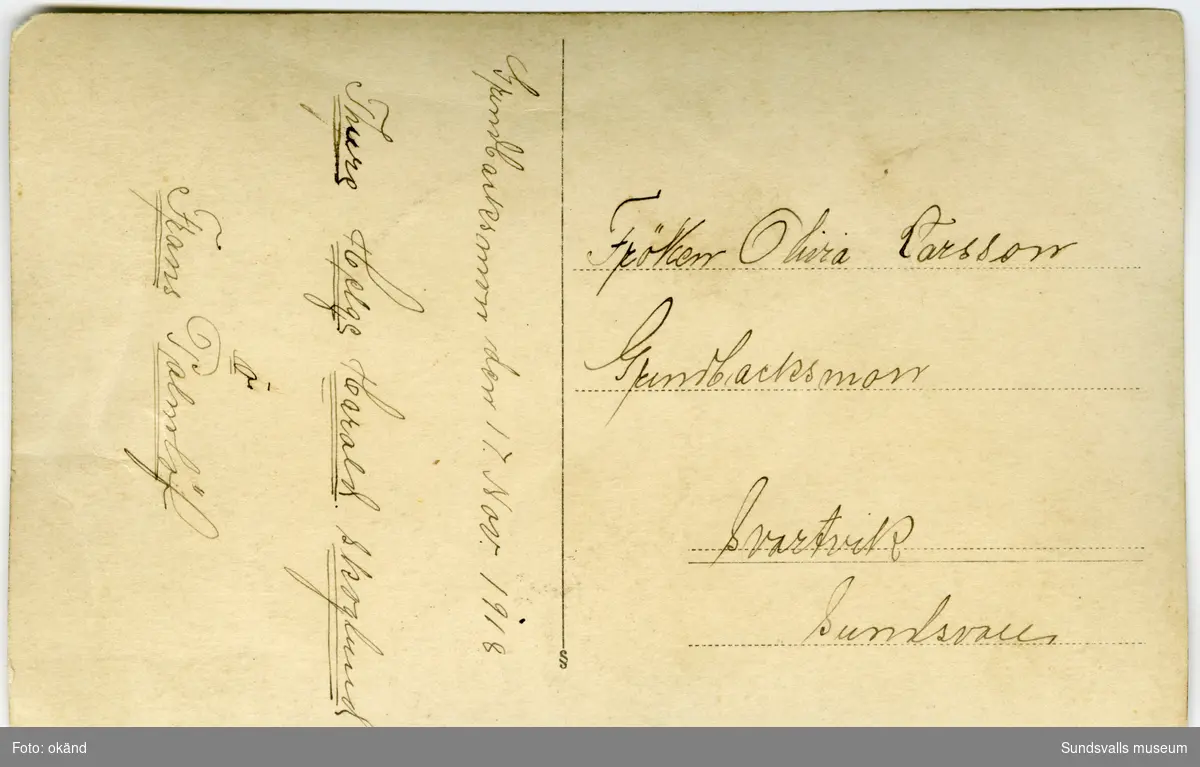 Grundbacksmon den 17. Nov 1918
Thure Helge Harald. Skoglund
o
Frans Palmlöf
Fröken Olivia Larsson
Grundbacksmon
Svartvik
Sundsvall
Foto: okänd
Sundsvalls museum